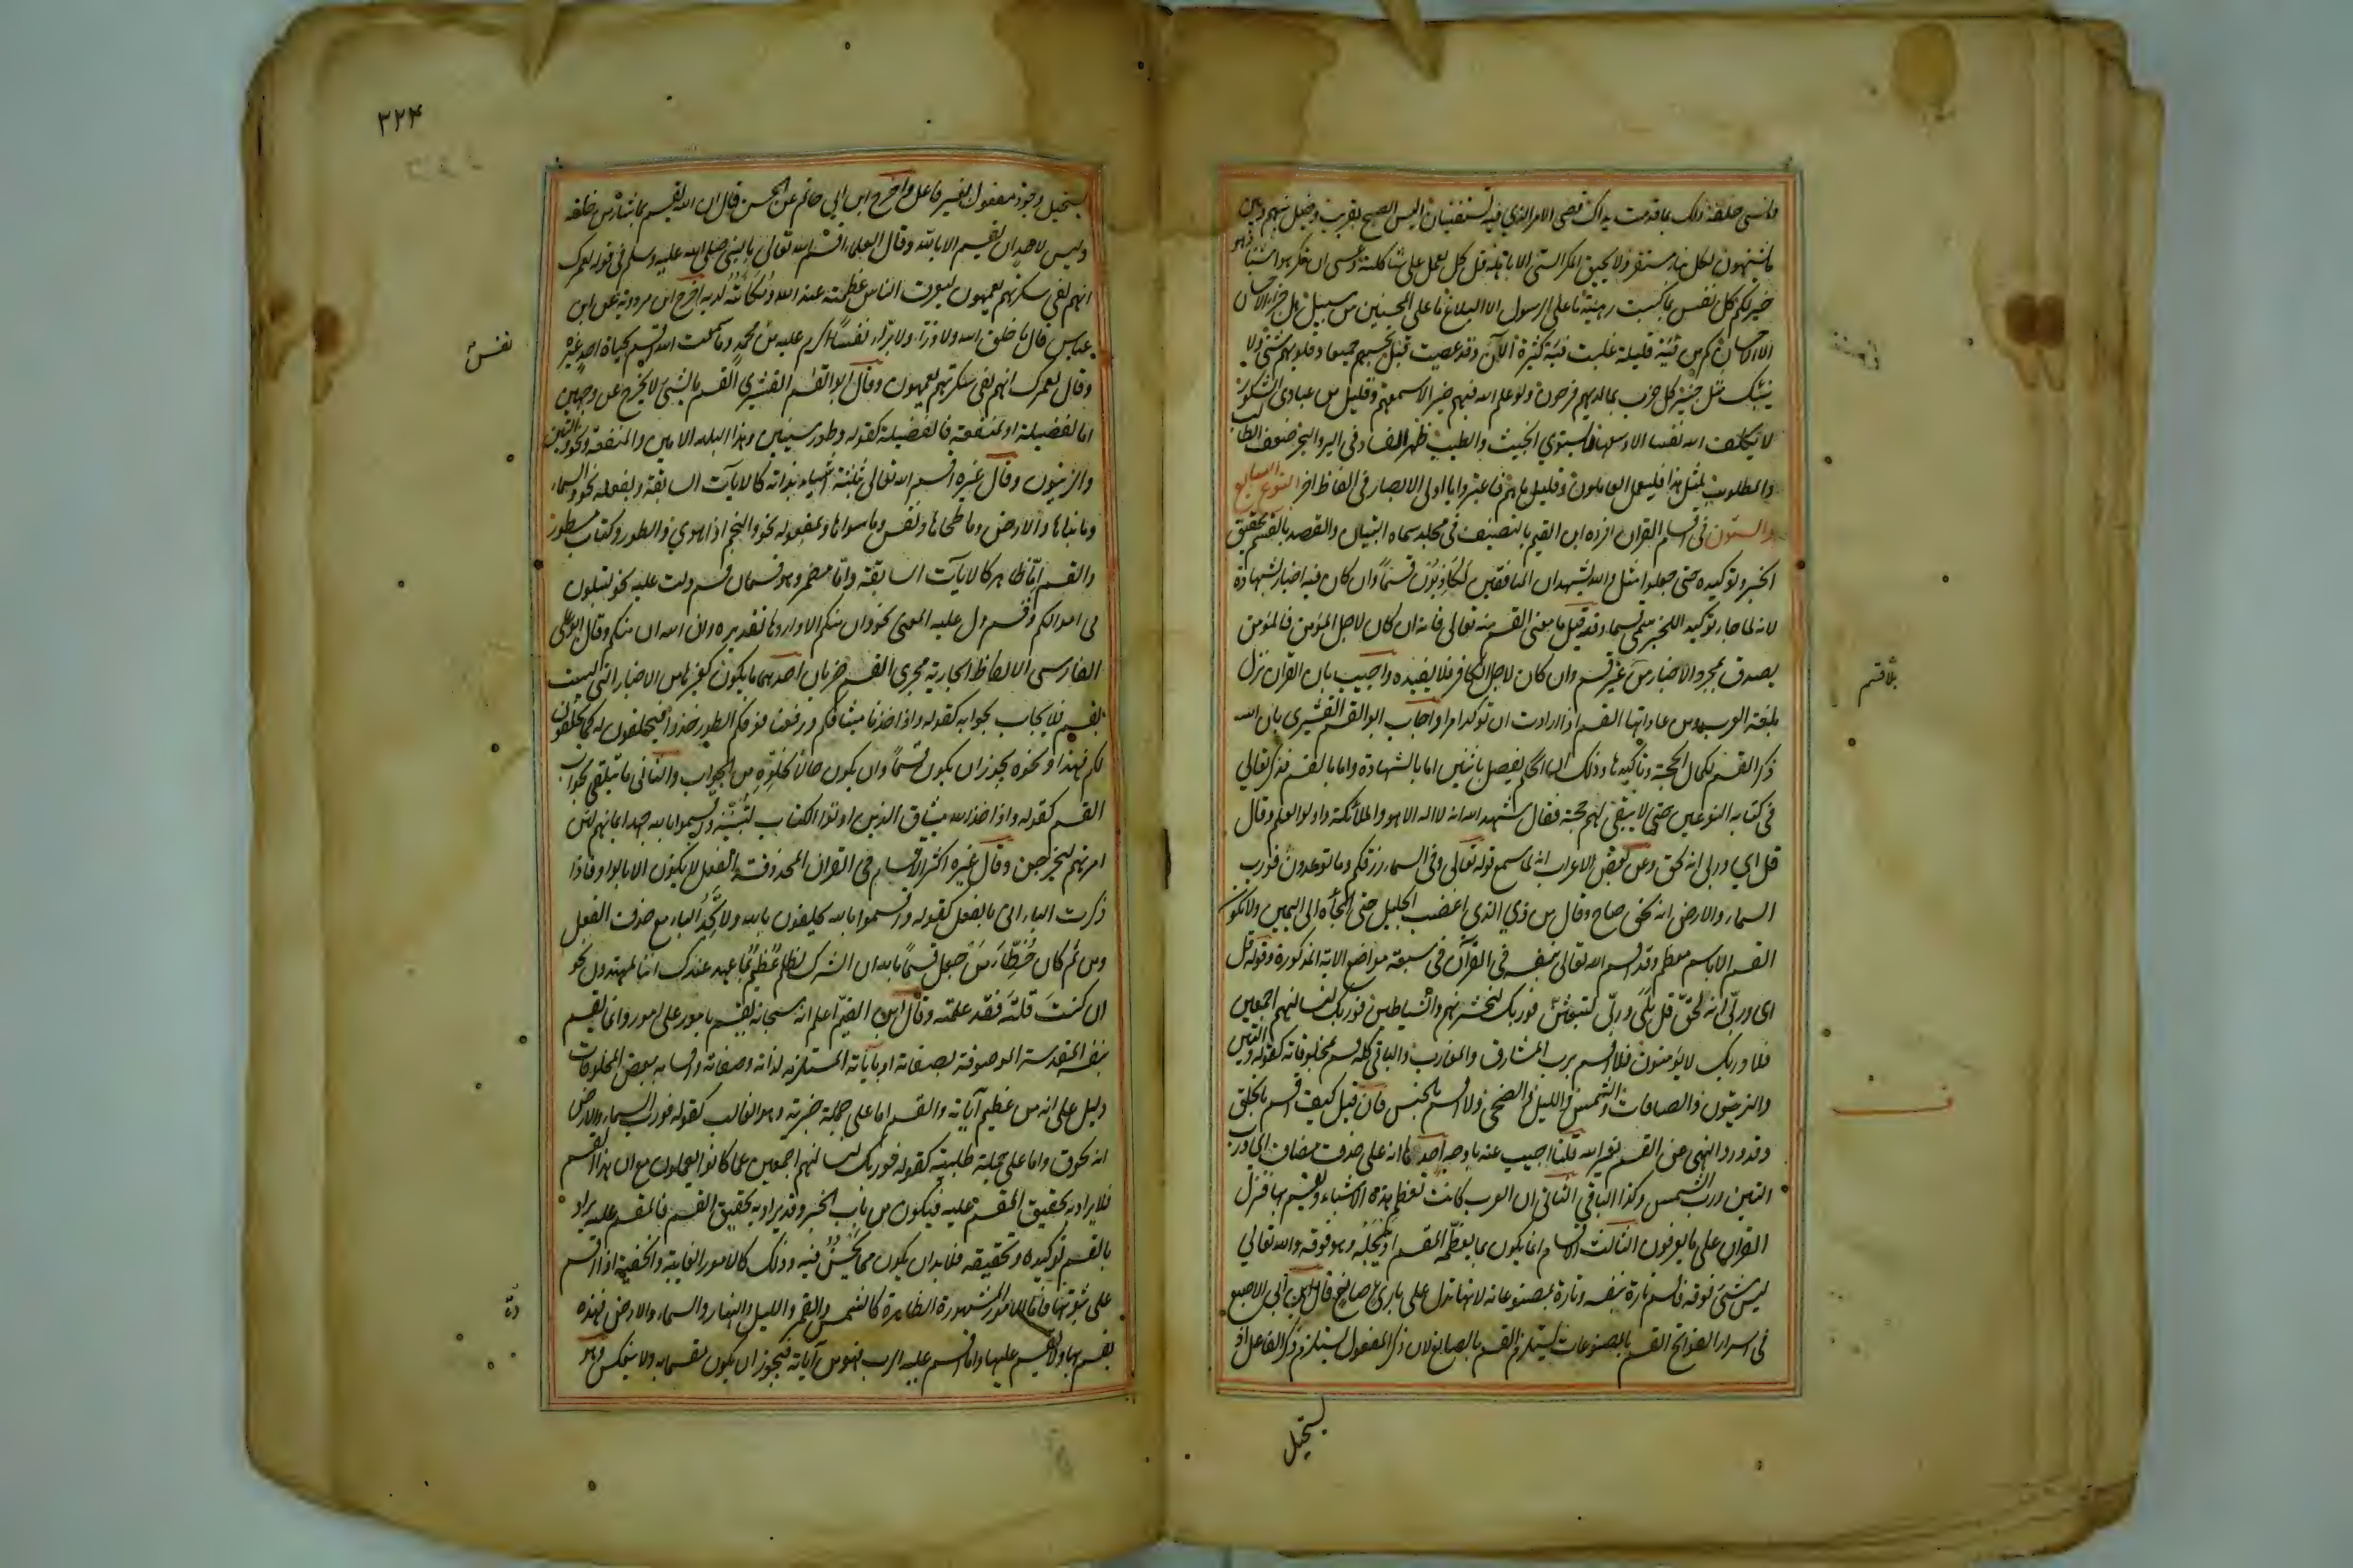 ونسى خلقه ذلك بما قدمت يداك قضى الامر الذي فيه تستفتيان اليس الصبح بقريب وحيل بينهم وبين
ما يشتهون لكل نبإ مستقر ولا يحيق المكر السئ الا باهله قل كل يعمل على شاكلته وعسى ان تكرهوا شيئا وهو
خير لكم كل نفس بما كسبت رهينة ما على الرسول الا البلاغ ما على المحسنين من سبيل هل جزاء الاحسان
الا الاحسان كم من فئة قليلة غلبت فئة كثيرة آلآن وقد عصيت قبل تحسبهم جميعا وقلوبهم شتى ولا
ينبئك مثل خبير كل حزب بما لديهم فرحون ولو علم الله فيهم خيرا لاسمعهم وقليل من عبادي الشكور
لا يكلف الله نفسا الا وسعها لا يستوي الخبيث والطيب ظهر الفساد في البر والبحر ضعف الطالب
والمطلوب لمثل هذا فليعمل العاملون وقليل ما هم فاعتبروا يا اولى الابصار فى الفاظ اخر النوع السابع
والستون فى اقسام القران افرده ابن القيم بالتصنيف فى مجلد سماه التبيان والقصد بالقسم تحقيق
الخبر وتوكيده حتى جعلوا مثل والله يشهد ان المنافقين لكاذبون قسما وان كان فيه اخبار بشهادة
لانه لما جاء توكيد اللخبر سمى قسما وقد قيل ما معنى القسم منه تعالى فانه ان كان لاجل المؤمن فالمؤمن
يصدق بمجرد الاخبار من غير قسم وان كان لاجل الكافر فلا يفيده واجيب بان القران نزل
بلغة العرب ومن عاداتها القسم اذا ارادت ان توكد امرا واجاب ابو القسم القشيري بان الله
ذكر القسم لكمال الحجة وتاكيدها وذلك ان الحكم يفصل باثنين اما بالشهادة واما بالقسم فذكر تعالي
فى كتابه النوعين حتى لا يبقى لهم حجة فقال شهد الله انه لا اله الا هو والملائكة واولوا العلم وقال
قل اي وربى انه لحق وعن بعض الاعراب انه لما سمع قوله تعالى وفى السماء رزقكم وما توعدون فورب
السماء والارض انه لحق صاح وقال من ذي الذي اغضب الجليل حتى الجأه الى اليمين ولا يكون
القسم الا باسم معظم وقد اقسم الله تعالى بنفسه فى القرآن فى سبعة مواضع الاية المذكورة وقوله قل
اى وربّى انه لحقّ قل بلى وربّى لتبعثنّ فوربك لنحشرنهم والشياطين فوربك لنسالنهم اجمعين
فلا وربك لا يؤمنون فلا اقسم برب المشارق والمغارب والباقي كله قسم بمخلوقاته كقوله والتين
والزيتون والصافات والشمس والليل والضحى فلا اقسم بالخنس فان قيل كيف اقسم بالخلق
وقد ورد النهى عن القسم بغير الله قلنا اجيب عنه باوجه احدها انه على حذف مضاف اي ورب
التين ورب الشمس وكذا الباقي الثانى ان العرب كانت تعظم هذه الاشياء وتقسم بها فنزل
القران على ما يعرفون الثالث ان الاقسام انما يكون بما يعظمه المقسم او يجلّه وهو فوقه والله تعالي
ليس شئ فوقه فاقسم تارة بنفسه وتارة بمصنوعاته لانها تدل على بارئ وصانع وقال ابن ابي الاصبع
فى اسرار الفواتح القسم بالمصنوعات يستلزم القسم بالصانع لان ذكر المفعول يستلزم ذكر الفاعل اذ
يستحيل
بلا قسم
٣٢٤
يستحيل وجود مفعول بغير فاعل واخرج ابن ابي حاتم عن الحسن قال ان الله يقسم بما شاء من خلقه
وليس لاحد ان يقسم الا بالله وقال العلماء اقسم الله تعالى بالنبى صلى الله عليه وسلم فى قوله لعمرك
انهم لفي سكرتهم يعمهون ليعرف الناس عظمته عند الله ومكانته لديه اخرج ابن مردويه عن ابن
عباس قال ما خلق الله ولا ذرأ ولا برأ نفسا اكرم عليه من محمد وما سمعت الله اقسم بحياة احد غيره
وقال لعمرك انهم لفى سكرتهم يعمهون وقال ابو القسم القشيري القسم بالشئ لا يخرج عن وجهين
اما لفضيلة او لمنفعة فالفضيلة كقوله وطور سينين وهذا البلد الامين والمنفعة نحو والتين
والزيتون وقال غيره اقسم الله تعالى بثلثة اشياء بذاته كالايات السابقة وبفعله نحو والسماء
وما بناها والارض وما طحاها ونفس وما سواها وبمفعوله نحو والنجم اذا هوي والطور وكتاب مسطور
والقسم اما ظاهر كالايات السابقة واما مضمر وهو قسمان قسم دلت عليه نحو لتبلون
فى اموالكم وقسم دل عليه المعنى نحو وان منكم الا واردها تقديره والله ان منكم وقال ابو على
الفارسى الالفاظ الجارية مجرى القسم ضربان احدهما ما يكون كغيرها من الاخبار التى ليست
بقسم فلا يجاب بجوابه كقوله واذ اخذنا ميثاقكم ورفعنا فوقكم الطور خذوا فيحلفون له كما يحلفون
لكم فهذا ونحوه يجوز ان يكون قسما وان يكون حالا لخلوه من الجواب والثانى ما يتلقى بجواب
القسم كقوله واذ اخذ الله ميثاق الذين اوتوا الكتاب لتبيننه واقسموا بالله جهد ايمانهم لئن
امرتهم ليخرجن وقال غيره اكثر الاقسام فى القران المحذوفة الفعل لا يكون الا بالواو فاذا
ذكرت الباء اتى بالفعل كقوله واقسموا بالله يحلفون بالله ولا تجد الباء مع حذف الفعل
ومن ثم كان خطأ من جعل قسما بالله ان الشرك لظلم عظيم بما عهد عندك اننا لمهتدون نحو
ان كنت قلته فقد علمته وقال ابن القيم اعلم انه سبحانه يقسم بامور على امور وانما يقسم
بنفسه المقدسة الموصوفة بصفاته او بآياته المستلزمة لذاته وصفاته واقسامه ببعض المخلوقات
دليل على انه من عظيم آياته والقسم اما على جملة خبرية وهو الغالب كقوله فورب السماء والارض
انه لحق واما على جملة طلبية كقوله فوربك لنسالنهم اجمعين عما كانوا يعملون مع ان هذا القسم
قد يراد به تحقيق المقسم عليه فيكون من باب الخبر وقد يراد به تحقيق القسم فالمقسم عليه يراد
بالقسم توكيده وتحقيقه فلا بد ان يكون مما يحسن فيه وذلك كالامور الغايبة والخفية اذا اقسم
على ثبوتها فاما الامور المشهورة الظاهرة كالشمس والقمر والليل والنهار والسماء والارض فهذه
يقسم بها ولا يقسم عليها وما اقسم عليه الرب فهو من آياته فيجوز ان يكون مقسما به ولا ينعكس وهو